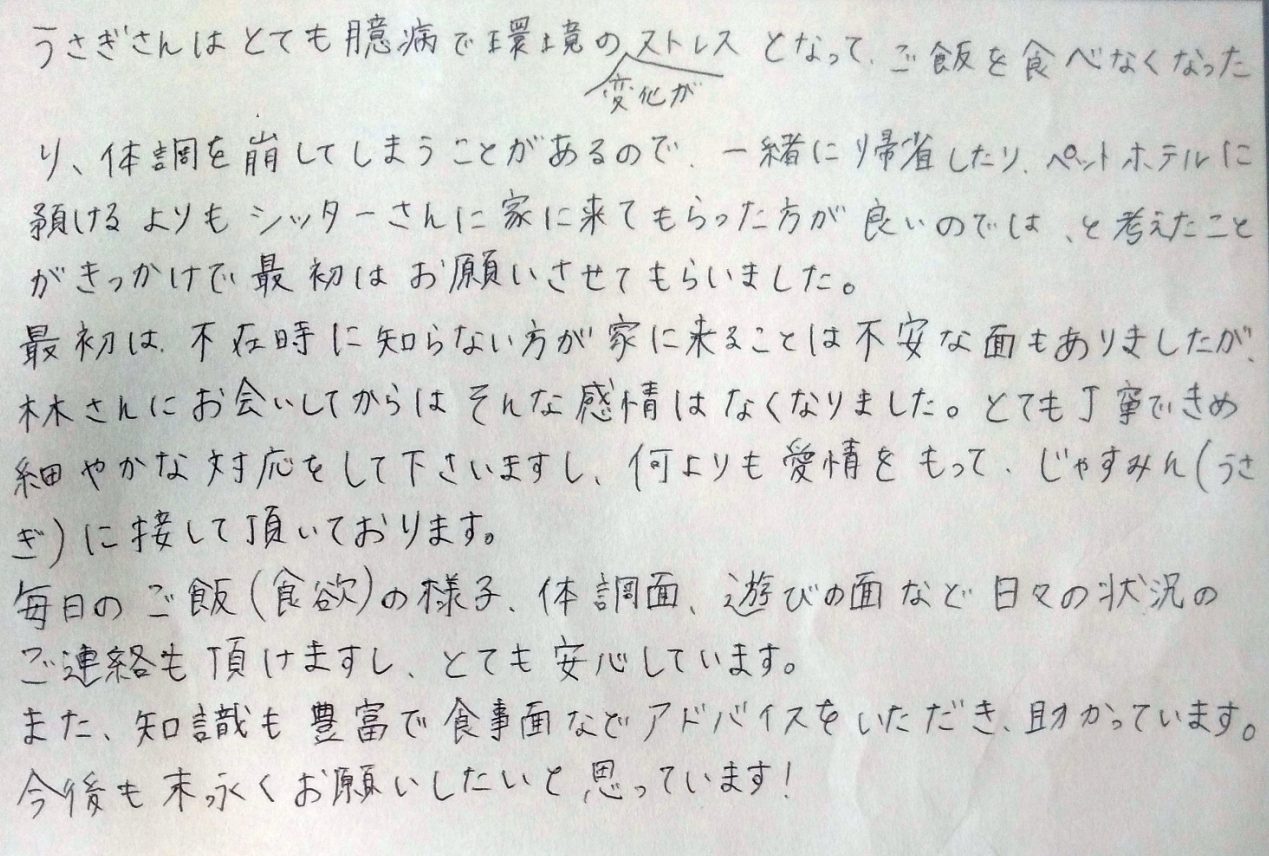 うさぎさんはとても臆病で環境の変化がストレスとなって、ご飯を食べなくなった
り、体調を崩してしまうことがあるので、一緒に帰省したり、ペットホテルに
預けるよりもシッターさんに家に来てもらった方が良いのでは、と考えたこと
がきっかけで最初はお願いさせてもらいました。
最初は、不在時に知らない方が家に来ることは不安な面もありましたが、
林さんにお会いしてからはそんな感情はなくなりました。とても丁寧できめ
細やかな対応をして下さいますし、何よりも愛情をもって、じゃすみん(うさ
ぎ)に接して頂いております。
毎日のご飯(食欲)の様子、体調面、遊びの面など日々の状況の
ご連絡も頂けますし、とても安心しています。
また、知識も豊富で食事面などアドバイスをいただき、助かっています。
今後も末永くお願いしたいと思っています!